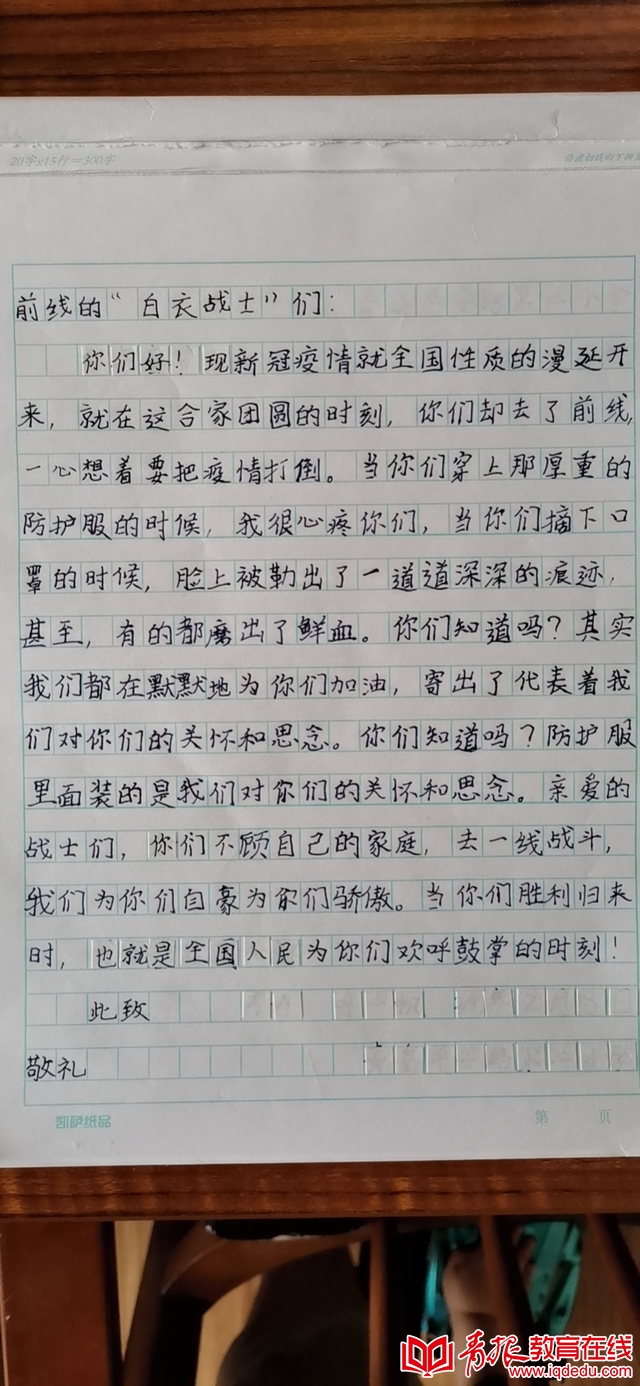 20字x15行=300字
前线的“白衣战士”们：
你们好！现新冠疫情就全国性质的漫延开
来，就在这合家团圆的时刻，你们却去了前线，
一心想着要把疫情打倒。当你们穿上那厚重的
防护服的时候，我很心疼你们，当你们摘下口
罩的时候，脸上被勒出了一道道深深的痕迹，
甚至，有的都磨出了鲜血。你们知道吗？其实
我们都在默默地为你们加油，寄出了代表着我
们对你们的关怀和思念。你们知道吗？防护服
里面装的是我们对你们的关怀和思念。亲爱的
战士们，你们不顾自己的家庭，去一线战斗，
我们为你们自豪为你们骄傲。当你们胜利归来
时，也就是全国人民为你们欢呼鼓掌的时刻！
此致
敬礼
凯萨纸品
第 页
青报教育在线
www.iqdedu.com